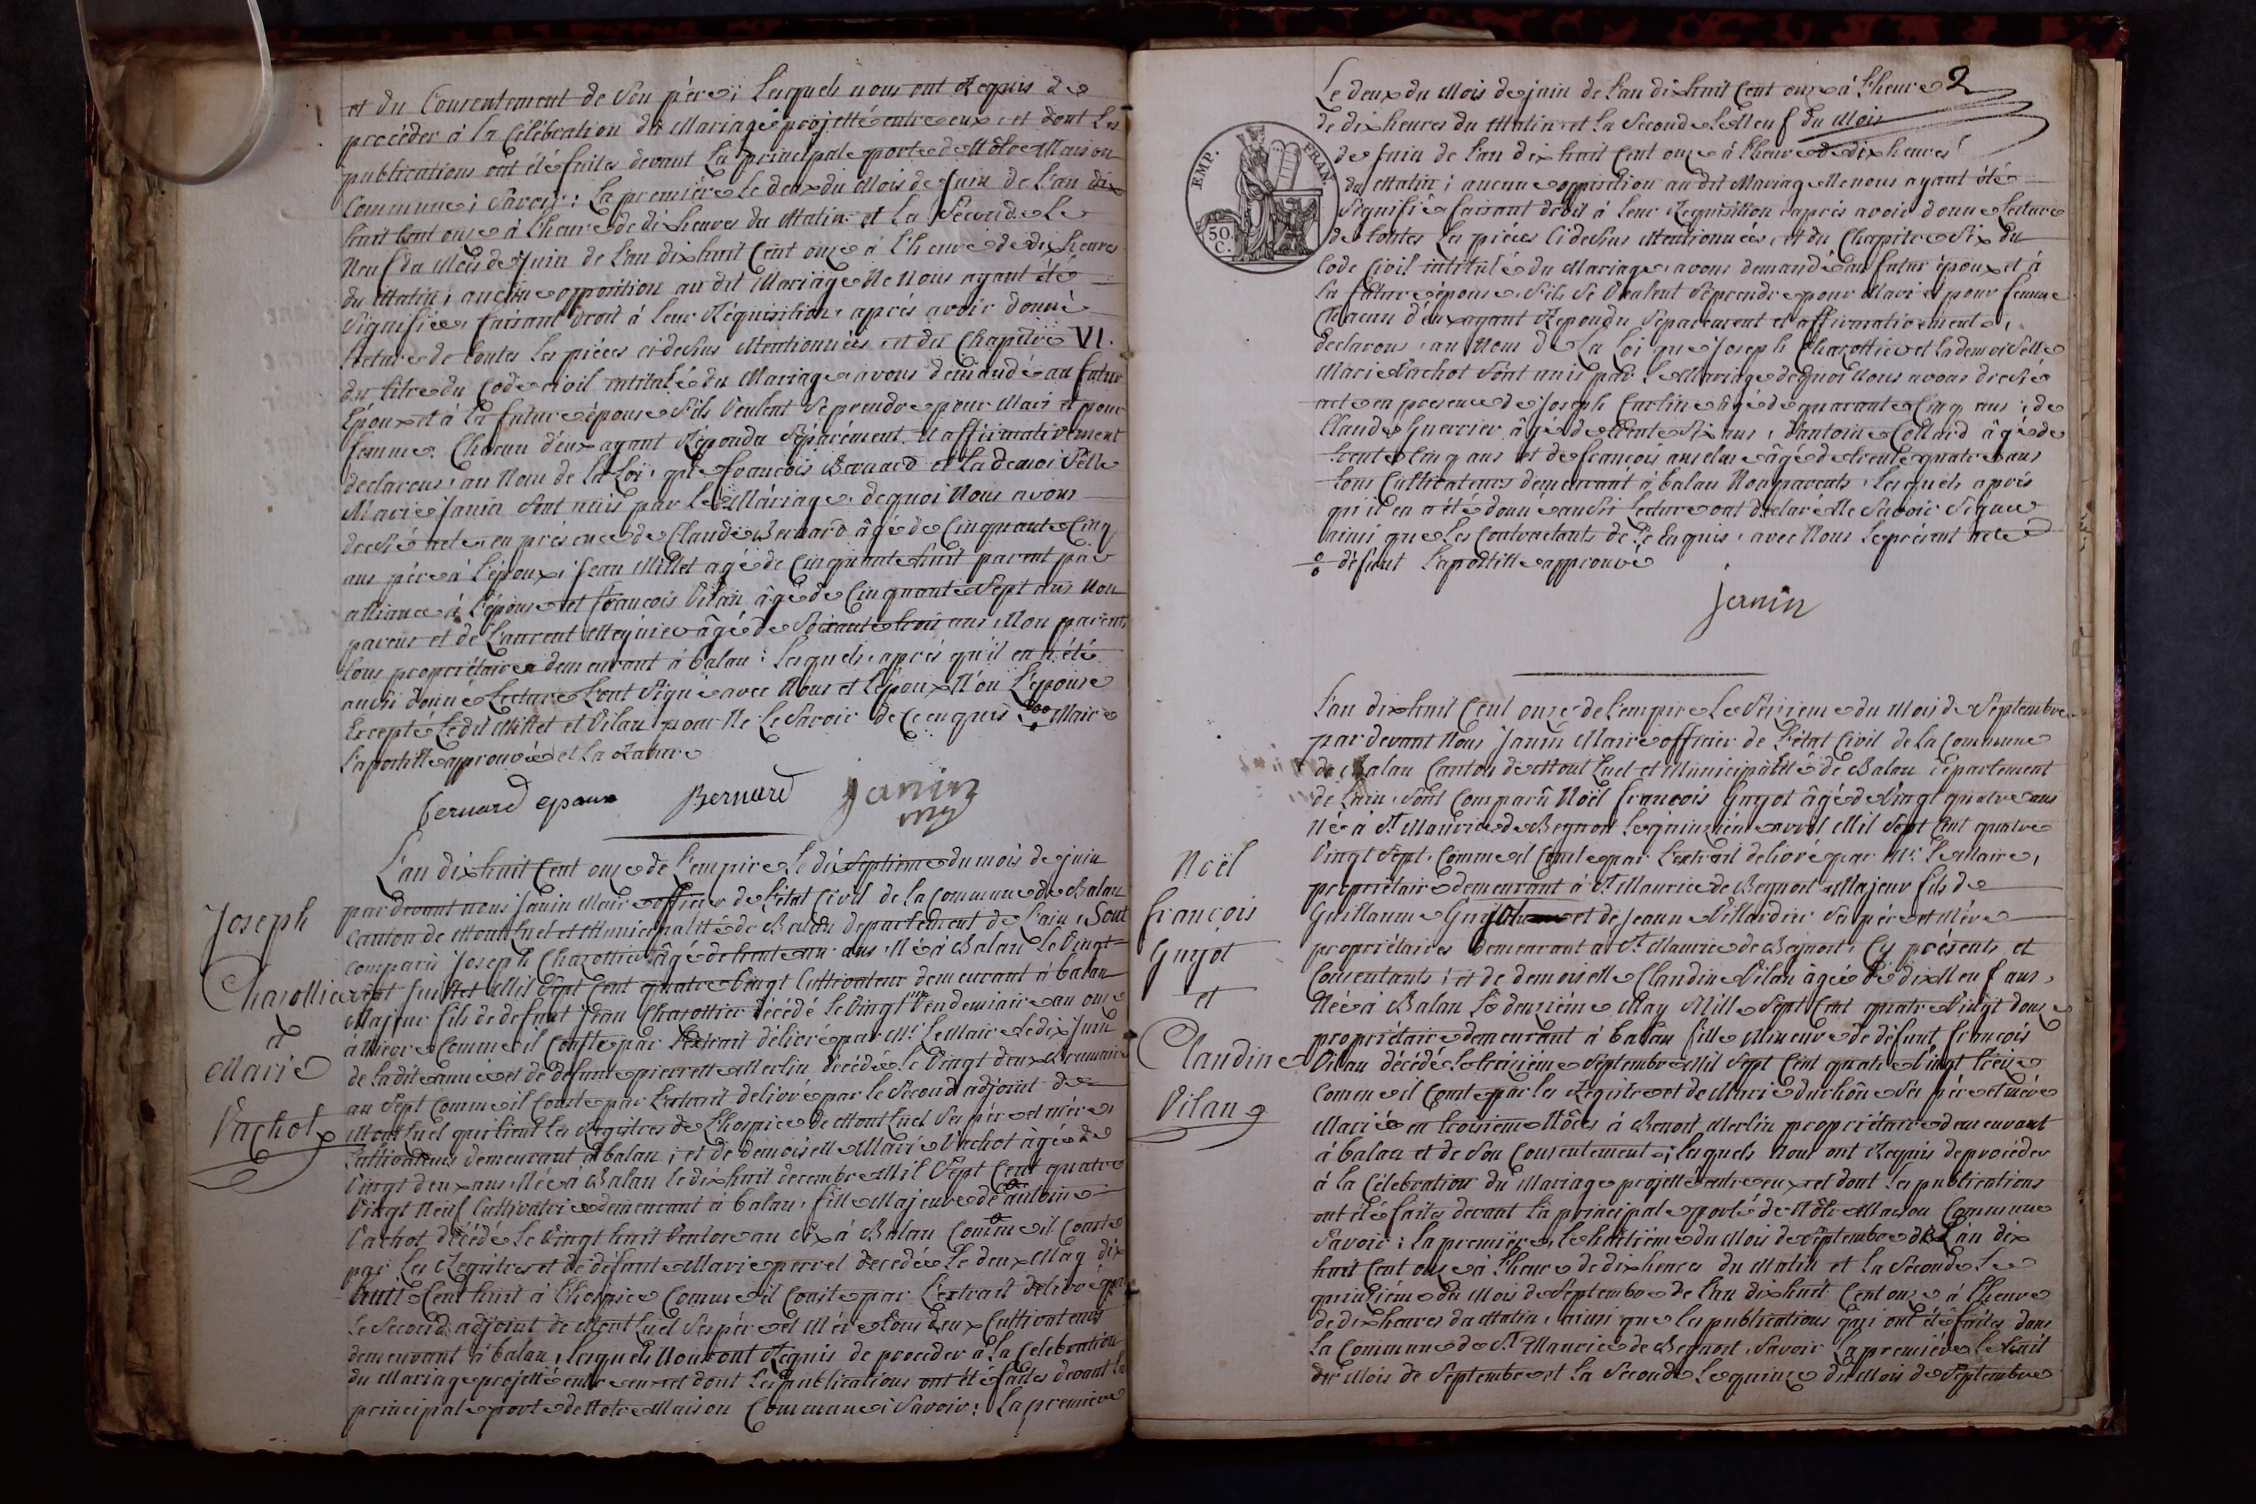 et du Consentement de Son père; Lesquels nous ont Requis de
procéder à la Célébration du Mariage projetté entre eux, et dont Les
publications ont été faites devant La principale porte de Nôtre Maison
Commune; Savoir: La première Le deux du Mois de Juin de L'an dix
huit Cent onze à l'heure de dix heures du Matin et La Seconde Le
Neuf du Mois de Juin de L'an dix huit Cent onze à l'heure de dix heures
du Matin; aucune opposition au dit Mariage Ne Nous ayant été
Signifiée, faisant droit à leur Réquisition, après avoir donné
Lecture de toutes Les pièces ci dessus Mentionnées, et du Chapitre VI.
du titre du Code civil intitulé du Mariage, avons demandé au futur
Epoux et à La future épouse S'ils Veulent Se prendre pour Mari et pour
femme. Chacun d'eux ayant Répondu Séparément et affirmativement
declarons, au Nom de la Loi, que françois Bernard et La demoiselle
Marie Janin Sont unis par Le Mariage, de quoi Nous avons
dressé acte en présence de Claude Bernard âgé de Cinquante Cinq
ans père à L'époux, Jean Millet agé de Cinquante huit parent par
alliance à L'épouse et françois Vilan âgé de Cinquante Sept ans Non
parens et de Laurent âgé de Soixante trois ans Non parents
tous propriétaires demeurant à balan: Lesquels, après qu'il en a été
aussi donné Lecture L'ont Signé avec Nous et L'époux Non L'épouse
Excepté Le dit Millet et Vilan pour Ne Le Savoir de Ce enquis Maire
L'apostille approuvée et La Rature
bernard epoux Bernard janin
L'an dix huit Cent onze de L'empire Le dix Septième du mois de juin
par devant nous Janin Maire officier de L'état Civil de La Commune de Balan
Canton de Montluel et Municipalité de Balan departement de L'ain, Sont
comparu Joseph Charottier âgé de trente un ans, Né à Balan le Vingt
Sept Juillet Mil Sept Cent quatre Vingt Cultivateur demeurant à balan
Majeur fils de defunt Jean Charottier décédé Le Vingt Vendemiaire an onze
à Nievre Comme il Conste par L'extrait délivré par Mr. Le Maire Le dix Juin
de La dite année et de defunte pierrette Merlin décédée Le Vingt deux Brumaire
an Sept Comme il Conste par L'extrait delivré par le Second adjoint de
Montluel qui tient Les Registres de L'hospice de Montluel Ses père et mère,
Cultivateurs demeurant à balan; et de demoiselle Marie Vachot âgée de
Vingt deux ans Née à Balan le dix huit decembre Mil Sept Cent quatre
Vingt Neuf Cultivatrice demeurant à balan, fille Majeure de antoine
Vachot décédé Le Vingt huit Ventose an dix à Balan Comme il Conste
par Les Registres et de défunte Marie perret décédée Le deux May dix
huit Cent huit à l'hospice Comme il Conste par L'extrait delivré par
Le Second adjoint de Montluel Ses père et Mère tous deux Cultivateurs
demeurant à balan; Lesquels Nous ont Requis de proceder à La Celebration
du Mariage projetté entre eux et dont Les publications ont été faites devant La
principale porte de Notre Maison Commune; Savoir: La premiere
Joseph
Charottier
et
Marie
Vachot
2
Le deux du Mois de juin de L'an dix huit Cent onze à L'heure
de dix heures du Matin et La Seconde Le Neuf du Mois
de Juin de L'an dix huit Cent onze à L'heure de dix heures
du Matin; aucune opposition au dit Mariage Ne nous ayant été
Signifiée faisant droit à leur Requisition, après avoir donné Lecture
de toutes Les pièces Ci dessus Mentionnées, et du Chapitre Six du
Code Civil intitulé du Mariage, avons demandé au futur époux et à
La future épouse, S'ils Se Veulent Se prendre pour Mari et pour femme
Chacun d'eux ayant Repondu Séparément et affirmativement,
declarons, au Nom de La Loi que Joseph Charottier et La demoiselle
Marie Vachot Sont unis par Le Mariage de quoi Nous avons dressé
acte en présence de Joseph Carlin âgé de quarante Cinq ans, de
Claude Guerrier âgé de trente Six ans, d'antoine Collard âgé de
trente Cinq ans et de françois anselme âgé de trente quatre ans
tous Cultivateurs demeurant à balan Non parents, Lesquels après
qu'il en a été donné aussi Lecture ont déclaré Ne Savoir Signer
ainsi que Les Contractants de Ce Enquis, avec Nous Le présent acte
défunt L'apostille approuvé
janin
EMP. FRAN.
50 C.
L'an dix huit Cent onze, de L'empire Le Seizieme du Mois de Septembre
par devant Nous Janin Maire officier de L'état Civil de La Commune
de Balan Canton de Montluel et Municipalité de Balan departement
de L'ain, Sont Comparû Noël françois Guyot âgé de Vingt quatre ans
Né à St. Maurice de Beynost Le quinzième avril Mil Sept Cent quatre
Vingt Sept, Comme il Conste par L'extrait delivré par Mr. Le Maire,
propriétaire demeurant à St. Maurice de Beynost, Majeur fils de
Guillaume Guyot et de Jeanne Villardier Ses père et Mère
propriétaires demeurant à St. Maurice de Beynost, Cy présents et
Consentants; et de demoiselle Claudine Vilan âgée de dix Neuf ans,
Née à Balan Le deuxième May Mille Sept Cent quatre Vingt douze
propriétaire demeurant à balan fille Mineure de défunt françois
Vilan décédé Le treizième Septembre Mil Sept Cent quatre Vingt treize
Comme il Conste par les Registres et de Marie duchêne Ses père et mère
Mariée en troisième Nôces à Benoit Merlin propriétaire demeurant
à balan et de Son Consentement; Lesquels Nous ont Requis de procéder
à la Célébration du Mariage projetté entre eux et dont Les publications
ont été faites devant La principale porte de Nôtre Maison Commune
Savoir: La première, Le huitième du Mois de Septembre de L'an dix
huit Cent onze à L'heure de dix heures du Matin et La Seconde Le
quinzième du Mois de Septembre de L'an dix huit Cent onze à L'heure
de dix heures du Matin, ainsi que Les publications qui ont été faites dans
La Commune de St. Maurice de Beynost, Savoir La première Le huit
du Mois de Septembre et La Seconde Le quinze du Mois de Septembre
Noël
françois
Guyot
et
Claudine
Vilan